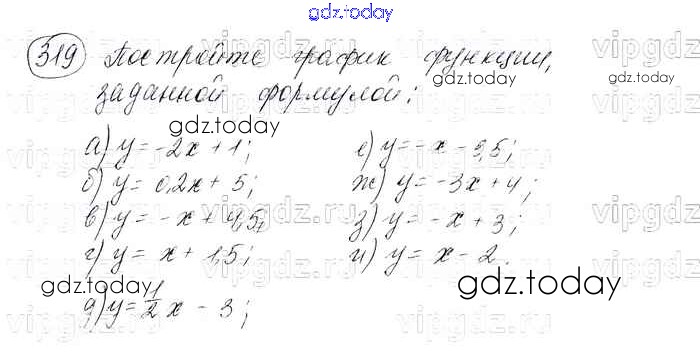 gdz.today
319 Постройте график функции,
заданной формулой:
а) y = -2x + 1;
б) y = 0,2x + 5;
в) y = -x + 4,5;
г) y = x + 1,5;
д) y = 1/2 x - 3;
е) y = -x - 3,5;
ж) y = -3x + 4;
з) y = -x + 3;
и) y = x - 2.
gdz.today
gdz.today
gdz.today
gdz.today
gdz.today
vipgdz.ru